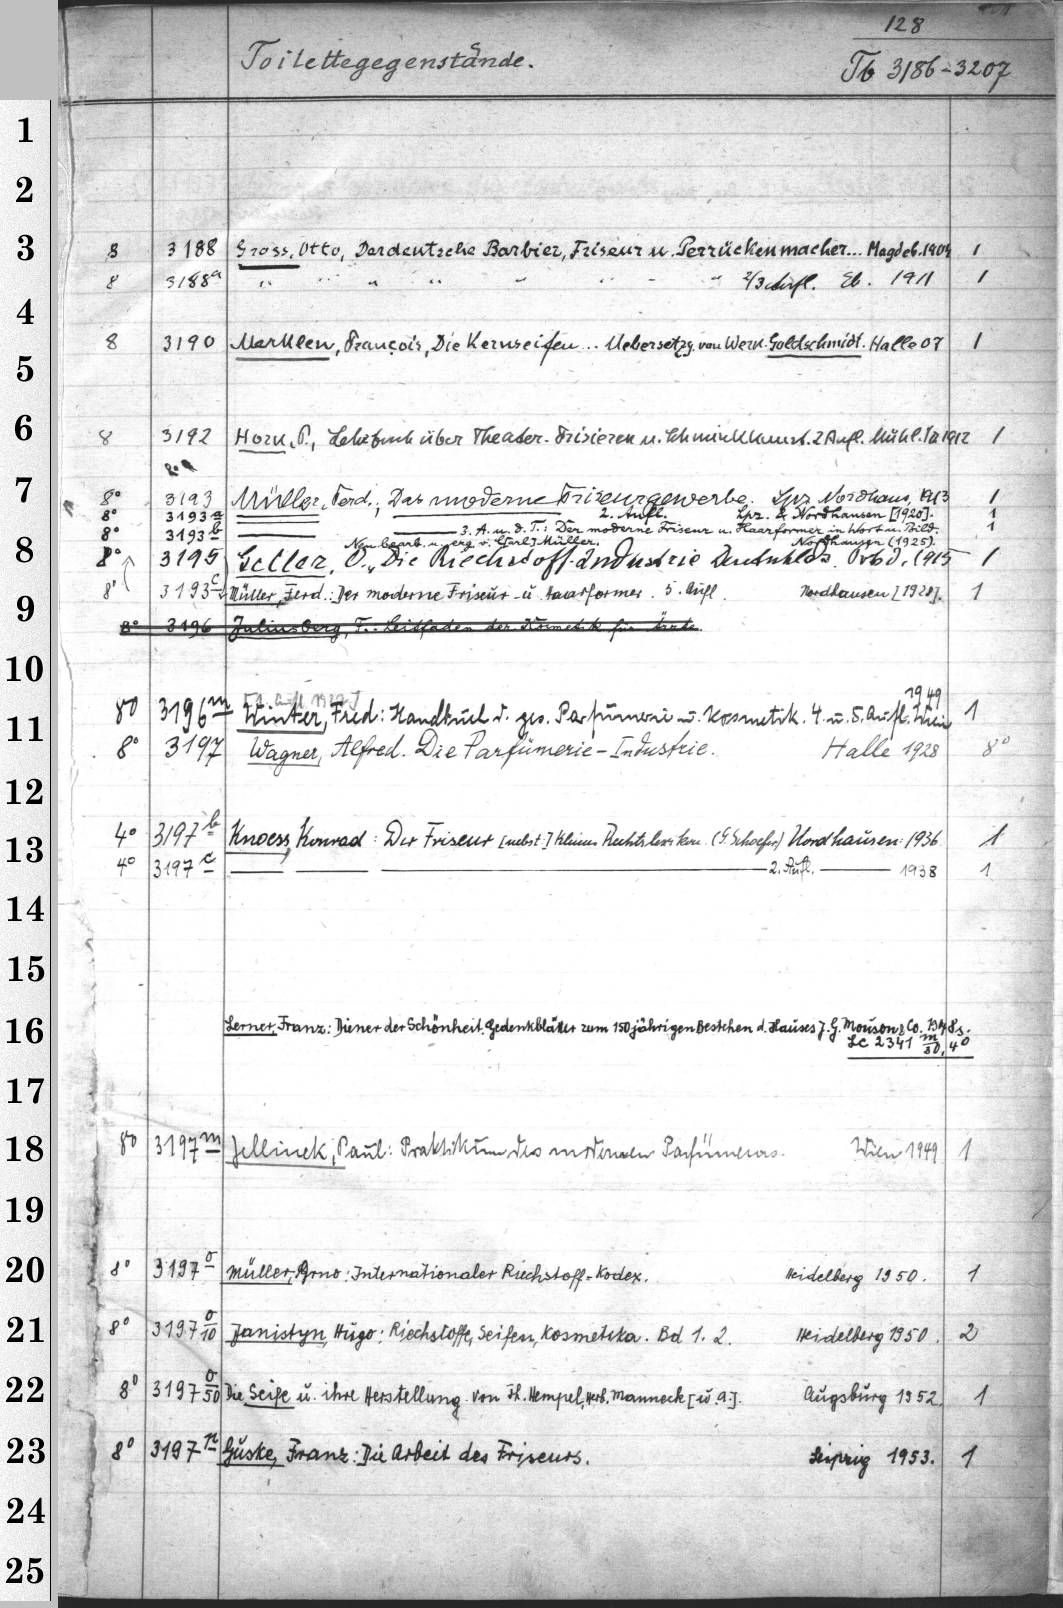 128
Toilettegegenstände.
Tb 3186-3207
1
2
3
8 3188 Gross, Otto, Der deutsche Barbier, Friseur u. Perrückenmacher... Magdeb. 1904 1
8 3188a " " " " " " " " 2/3 Aufl. Eb. 1911 1
4
8 3190 Merklen, François, Die Kernseifen... Uebersetzg. von Wern. Goldschmidt. Halle 07 1
5
6
8 3192 Horn, P., Lehrbuch über Theater-Frisieren u. Schminkkunst. 2 Aufl. Mühl. 1912 1
7
8° 3193 Müller, Ferd., Das moderne Friseurgewerbe. Lpz. Nordhaus. 1913 1
8° 3193a — — 2. Aufl. Lpz. & Nordhausen [1920]. 1
8° 3193b — — 3. A. u. d. T.: Der moderne Friseur u. Haarformer in Wort u. Bild. 1
Neu bearb. u. erg. v. [Carl] Müller. Nordhausen (1925).
8
8° 3195 Geller, O., Die Riechstoff-Industrie Deutschlds. 1915 1
8° 3193c Müller, Ferd.: Der moderne Friseur u. Haarformer. 5. Aufl. Nordhausen [1928]. 1
9
8° 3196 Juliusberg, F.. Leitfaden der Kosmetik für Ärzte.
10
11
1949
8° 3196m Winter, Fred: Handbuch d. ges. Parfümerie u. Kosmetik. 4. u. 5. Aufl. Wien 1
8° 3197 Wagner, Alfred. Die Parfümerie-Industrie. Halle 1928 8°
12
13
4° 3197b Knoess, Konrad: Der Friseur [nebst] kleines Rechtslexikon. (G. Schaefer) Nordhausen: 1936 1
4° 3197c — — — 2. Aufl. — 1938 1
14
15
16
Lerner, Franz: Diener der Schönheit. Gedenkblätter zum 150jährigen Bestehen d. Hauses J. G. Mouson & Co. 1948.
Lc 2341 m/50, 4°
17
18
8° 3197m Jellinek, Paul: Praktikum des modernen Parfümeurs. Wien 1949 1
19
20
8° 3197o Müller, Arno: Internationaler Riechstoff-Kodex. Heidelberg 1950. 1
21
8° 3197o/10 Janistyn, Hugo: Riechstoffe, Seifen, Kosmetika. Bd 1. 2. Heidelberg 1950. 2
22
8° 3197o/50 Die Seife u. ihre Herstellung von Th. Hempel, Herb. Manneck [u. a.]. Augsburg 1952. 1
23
8° 3197r Guske, Franz: Die Arbeit des Friseurs. Leipzig 1953. 1
24
25